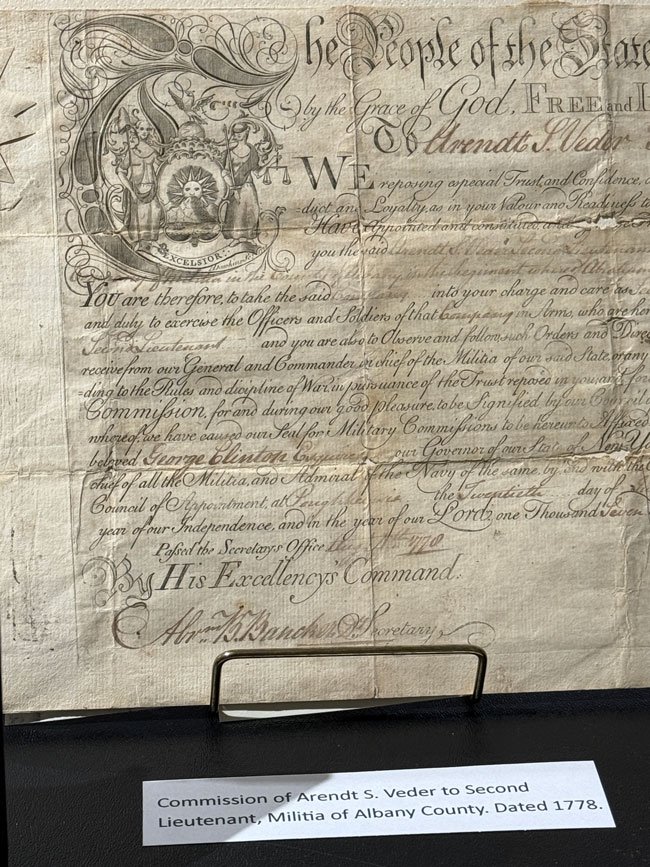 The People of the State
by the Grace of God, FREE and I
To Arendt S. Veder
WE reposing especial Trust and Confidence,
duct and Loyalty, as in your Valour and Readiness to
Have Appointed and constituted, and
you the said Arendt S. Veder Second Lieutenant
in the County of Regiment whereof Abraham
EXCELSIOR
YOU are therefore, to take the said Company into your charge and care as
and duty to exercise the Officers and Soldiers of that Company in Arms, who are her
Second Lieutenant and you are also to Observe and follow such Orders and Direc
receive from our General and Commander in chief of the Militia of our said State, or any
=ding to the Rules and dicipline of War, in pursuance of the Trust reposed in you, and for
Commission, for and during our good Pleasure, to be Signified by our Council
whereof, we have caused our Seal for Military Commissions to be hereunto Affixed
beloved George Clinton Esquire our Governor of our State of New Y
chief of all the Militia, and Admiral of the Navy of the same, by and with the
Council of Appointment, at Poughkeepsie the Twentieth day of
year of our Independence, and in the year of our Lord, one Thousand Seven
Passed the Secretarys Office 1778
By His Excellency's Command.
Abrm. B. Bancker Dy. Secretary
Commission of Arendt S. Veder to Second
Lieutenant, Militia of Albany County. Dated 1778.